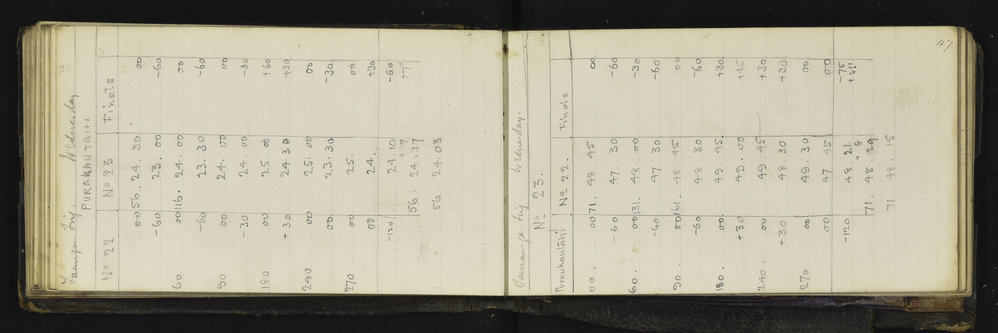 Tauranga Trig. Wednesday
PURAKAUTAHI
No 22 No 23 Finals
00 56. 24. 30 00
-60 23. 00 -60
60 00 116. 24. 00 00
-60 23. 30 -60
90 00 24. 00 00
-30 24. 00 -30
180 00 25. 00 +60
+30 24. 30 +30
240 00 25. 00 00
00 23. 30 -30
270 00 25. 00
00 24. +30
-120 24. 10 -60
+7
56. 24. 17
56 24. 03
47
Tauranga Trig Wednesday.
No 23.
Puraukautahi No 22. Finals
00. 00 71. 48 45 00
-60 47. 30 -60
60. 00 131. 48. 00 -30
-60 47 30 -60
90. 00 161. 48 45 00
-60 48. 30 -60
180. 00 49 45 +30
+30 49. 00 +15
240. 00 49 45 +30
+30 48 30 +30
270 00 49. 30 00
00 47 45 00
-120 48 21 -75
+8
71. 48. 29
71 48. 15